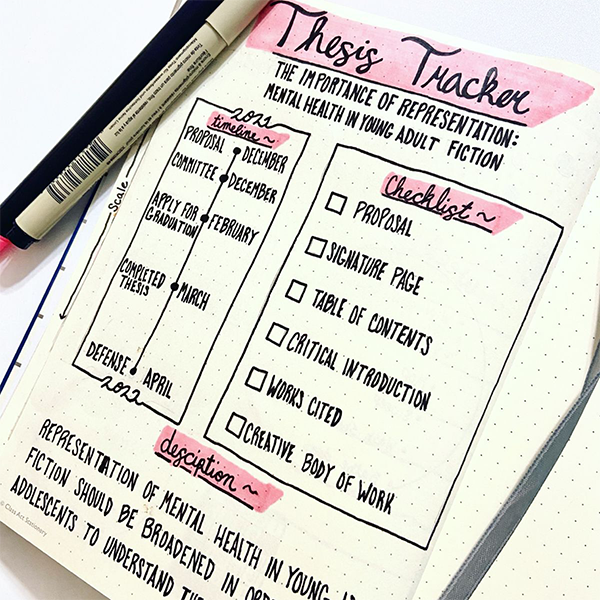 Thesis Tracker
THE IMPORTANCE OF REPRESENTATION:
MENTAL HEALTH IN YOUNG ADULT FICTION
2021
timeline~
PROPOSAL DECEMBER
COMMITTEE DECEMBER
APPLY FOR
GRADUATION FEBRUARY
COMPLETED
THESIS MARCH
DEFENSE APRIL
2022
Checklist~
PROPOSAL
SIGNATURE PAGE
TABLE OF CONTENTS
CRITICAL INTRODUCTION
WORKS CITED
CREATIVE BODY OF WORK
desciption~
REPRESENTATION OF MENTAL HEALTH IN YOUNG
FICTION SHOULD BE BROADENED IN
ADOLESCENTS TO UNDERSTAND
Scale
© Class Act Stationery